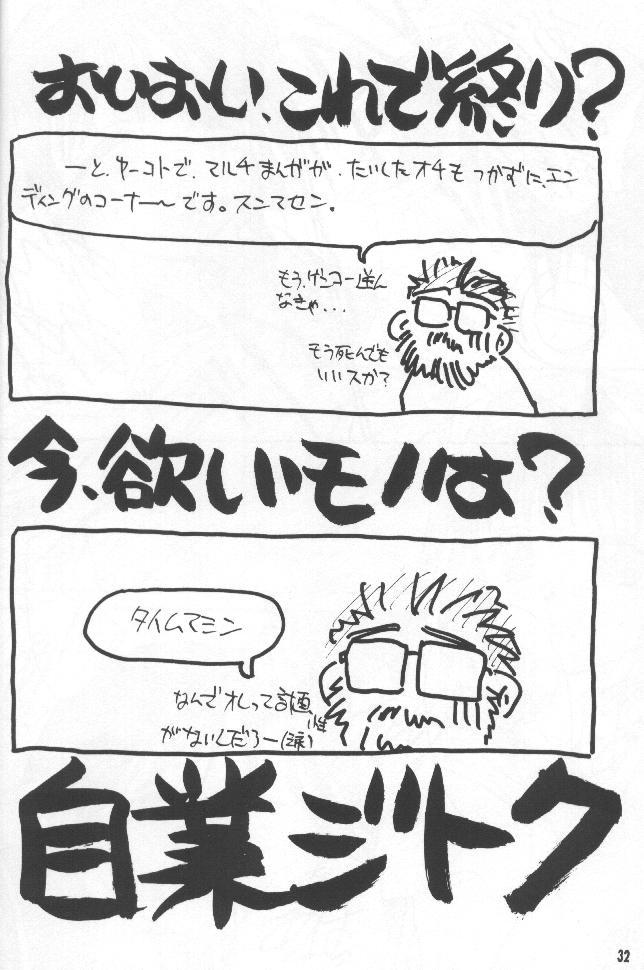 おいおい、これで終り?
ーと、ゆーコトで、マルチまんがが、たいしたオチもつかずに、エン
ディングのコーナー〜です。スンマセン。
もう、げんコー送ん
なきゃ...
もう死んでも
いいスか?
今、欲しいモノは?
タイムマミン
なんでオレって計画
性
がないんだろー(涙)
自業ジトク
32